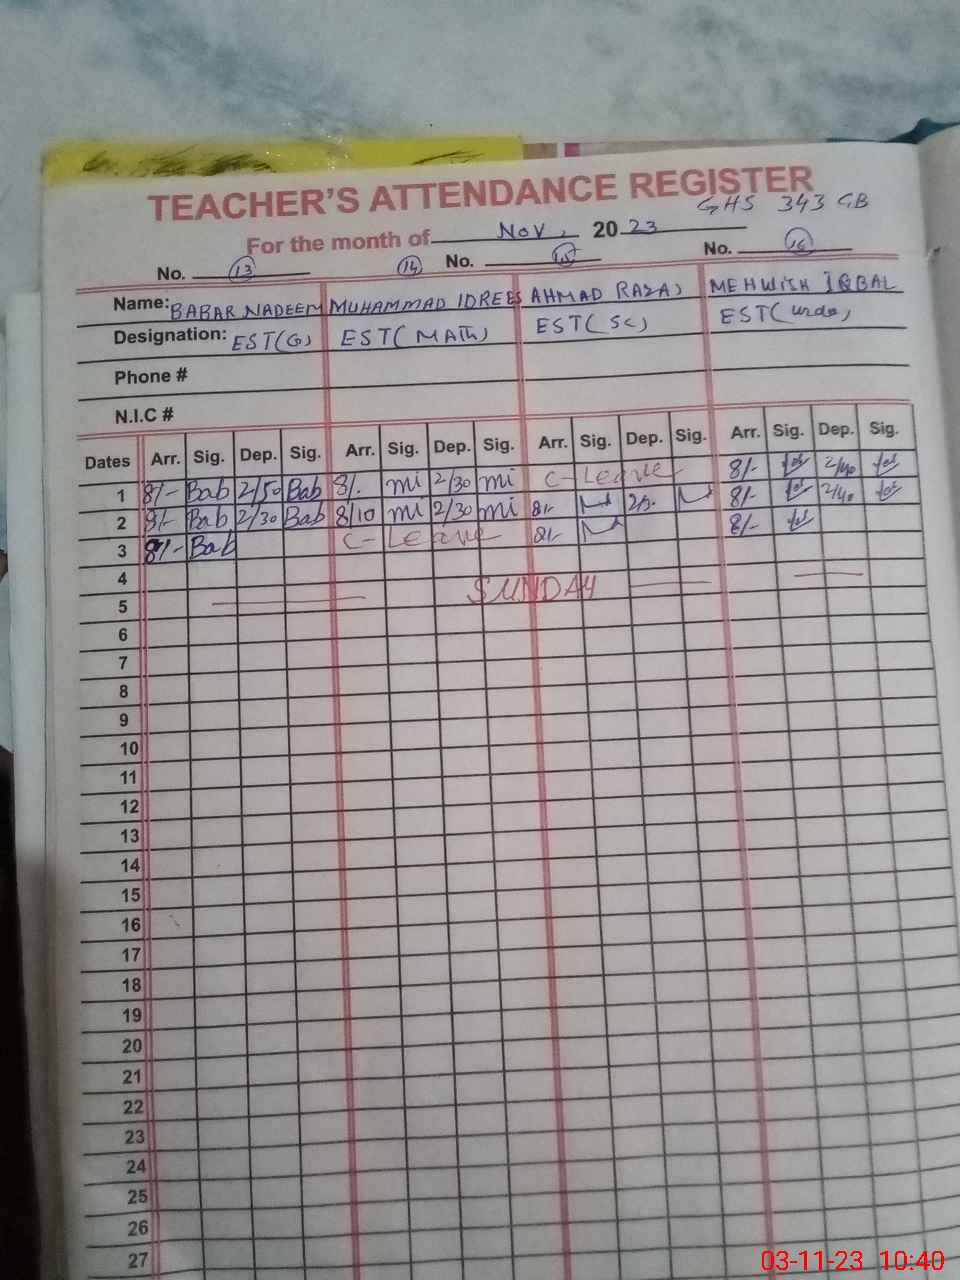 TEACHER'S ATTENDANCE REGISTER
GHS 343 GB
For the month of Nov, 20 23
No. 13 14 No. 15 No. 16
Name: BABAR NADEEM MUHAMMAD IDREES AHMAD RAZA MEHWISH IQBAL
Designation: EST(G) EST(MATH) EST(SC) EST(Urdu)
Phone #
N.I.C #
Dates Arr. Sig. Dep. Sig. Arr. Sig. Dep. Sig. Arr. Sig. Dep. Sig. Arr. Sig. Dep. Sig.
1 8/- Bab 2/50 Bab 8/. mi 2/30 mi C-Leave 8/- 2/40
2 8/- Bab 2/30 Bab 8/10 mi 2/30 mi 8/- 8/- 2/40
3 8/- Bab C-Leave 8/- 8/-
4
5 SUNDAY
6
7
8
9
10
11
12
13
14
15
16
17
18
19
20
21
22
23
24
25
26
27
03-11-23 10:40